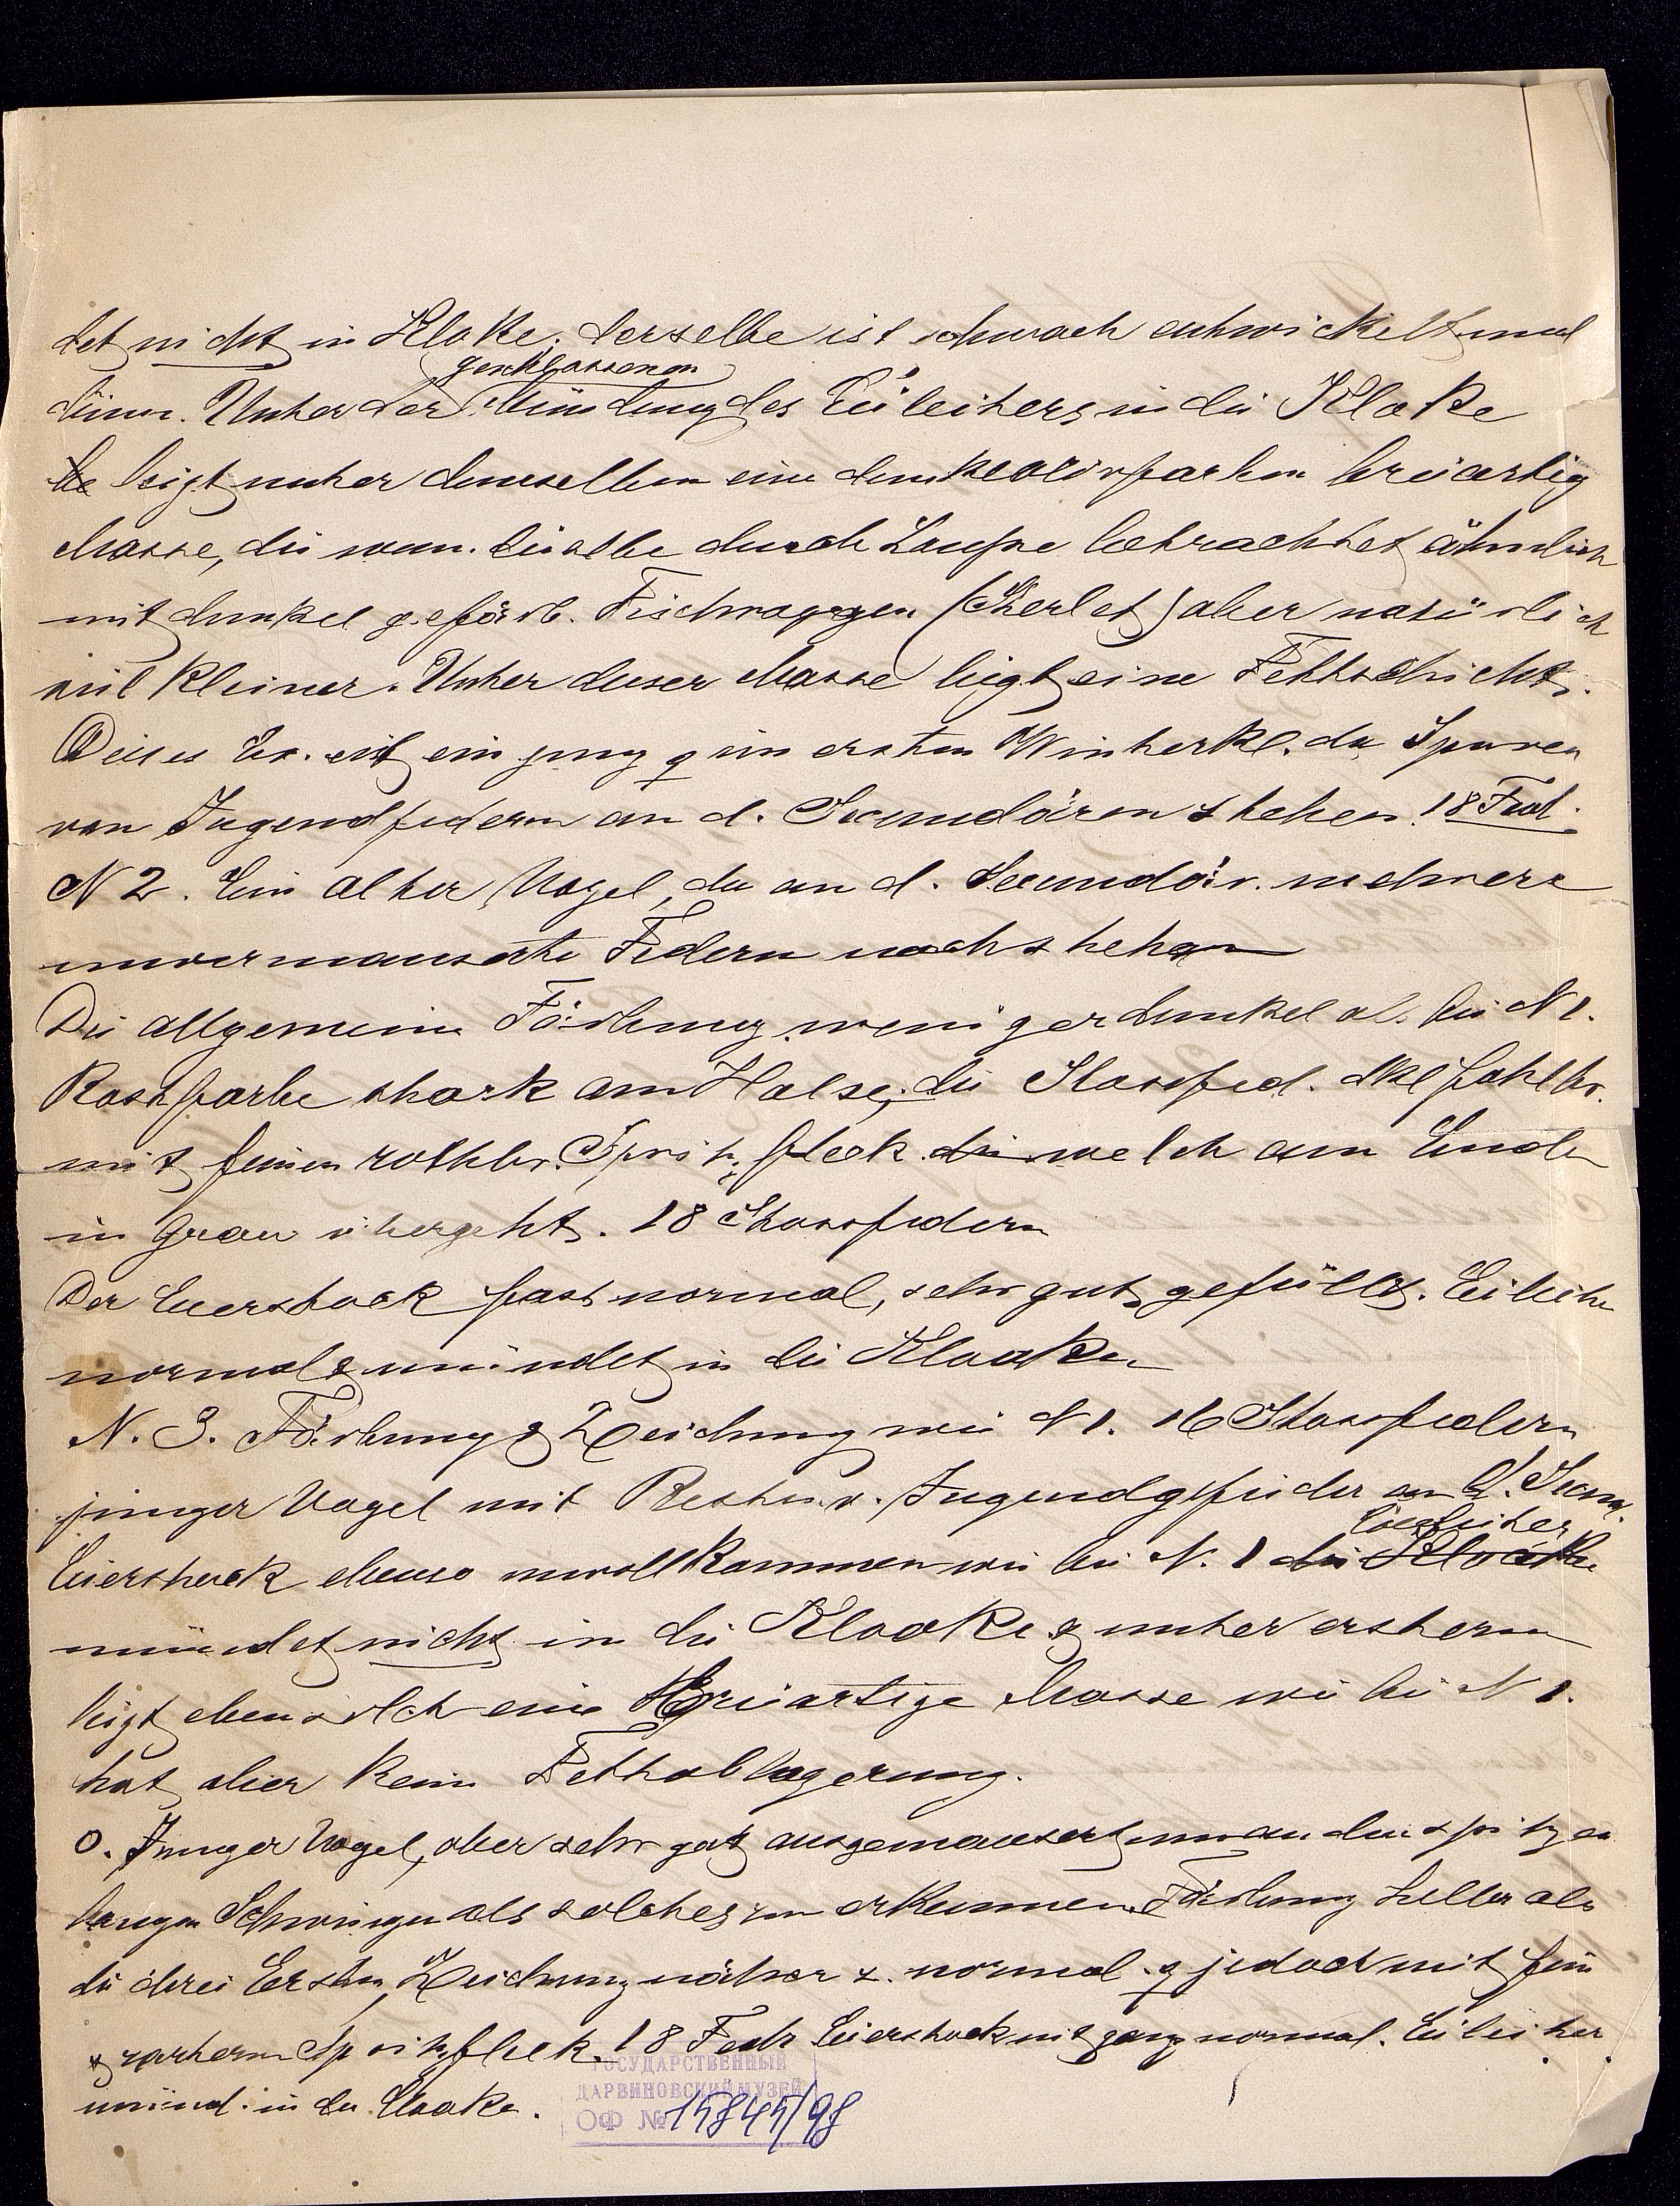 det nicht in Kloke. derselbe ist schwach entwickelt und
geschlossenen
dünn. Unter der Mündung des Eileiters in die Kloke
be liegt unter demselben eine dunkelolivfarben breiartig
Masse, die wenn dieselbe durch Loupe betrachtet ähnlich
mit dunkel gefärb. Fischroggen (Sterlet) aber natürlich
viel kleiner. Unter dieser Masse liegt eine Fettschicht.
Dieses Ex. ist ein jung ♀ im ersten Winterkl. da Spuren
von Jugendfedern an d. Secundären stehen. 18 Fed.
N 2. Ein alter Vogel, da an d. Secundär. mehrere
unvermauserte Federn noch stehen
Die allgemeine Färbung weniger dunkel als bei N 1.
Rostfarbe stark am Halse, die Stossfed. dkl fahlbr.
mit feinen rothbr. Spritzfleck. die welch am Ende
in Grau übergeht. 18 Stossfedern
Der Eierstock fast normal, sehr gut gefüllt. Eileiter
normal & mündet in die Kloake
N. 3. Färbung & Zeichnung wie N 1. 16 Stossfedern
junger Vogel mit Resten v. Jugendgefieder an d. Secun.
Eileiter
Eierstock ebenso unvollkommen wie bei N. 1 die Kloake
mündet nicht in die Kloake & unter ersterem
liegt ebensolch eine Breiartige Masse wie bei N 1.
hat aber kein Fettablagerung.
0. Junger Vogel, aber sehr gut ausgemausert nur an den spitzen
langen Schwingen als solches zu erkennen. Färbung heller als
die drei Ersten, Zeichnung näher z. normal. ♀ jedoch mit fein
& zarterem Spritzfleck. 18 Fedr Eierstock nit ganz normal. Eileiter
münd. in die Cloake.
ГОСУДАРСТВЕННЫЙ
ДАРВИНОВСКИЙ МУЗЕЙ
ОФ № 15845/98